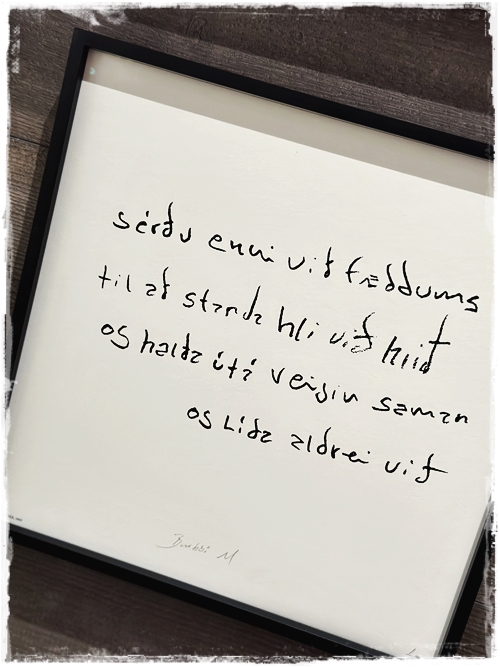 sérðu ekki við fæddums
til að standa hli við hlið
og halda útá veigin saman
og líða aldrei við
Bubbi M